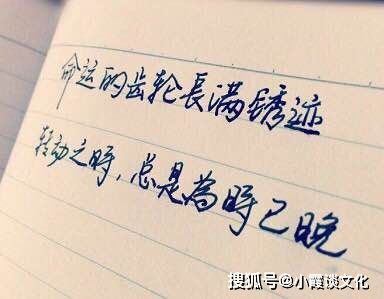 命运的齿轮長满锈迹
转动之時，总是為時已晚
搜狐号@小霞谈文化